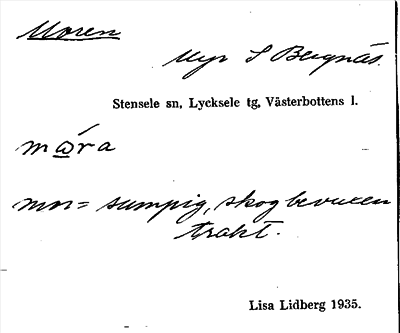 Moren
Myr S Bergnäs.
Stensele sn, Lycksele tg, Västerbottens l.
mώ̲ra
mor= sumpig, skogbevuxen
trakt.
Lisa Lidberg 1935.